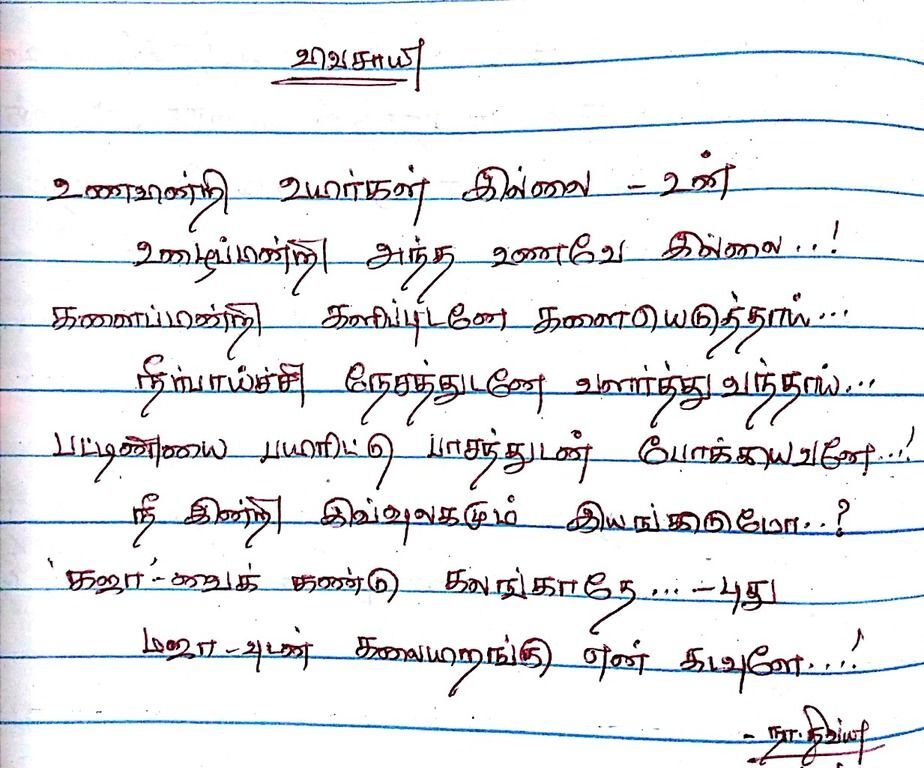 விவசாயி
உணவின்றி உயிர்கள் இல்லை - உன்
உழைப்பின்றி அந்த உணவே இல்லை..!
களைப்பின்றி களிப்புடனே களையெடுத்தாய்...
நீர்பாய்ச்சி நேசத்துடனே வளர்த்து வந்தாய்...
பட்டினியை பயிரிட்டு பாசத்துடன் போக்கியவனே...!
நீ இன்றி இவ்வுலகமும் இயங்கிடுமோ..?
'கஜா'-வைக் கண்டு கலங்காதே... - புது
மஜா-வுடன் களையிறங்கு என் கடவுளே....!
- நா. திவ்யா